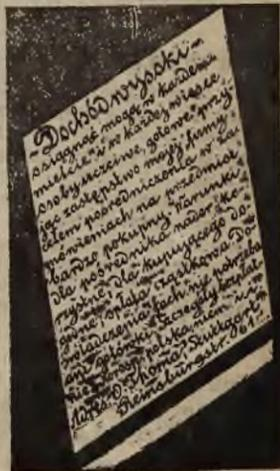 -Dochód wysoki-
osiągnąć mogą w każdem
mieście i w każdej wiosce
osoby uczciwe, gotowe przy-
jąć zastępstwo mojej firmy
celem pośredniczenia w za-
mówieniach na przedmiot
bardzo pokupny. Warunki
dla pośrednika nader ko-
rzystne, dla kupującego do-
godne; spłata cząstkowa. Do-
świadczenia fach. nie potrzeba
ani gotówki. Szczegóły bezpłat-
nie. polska, niem.
O. Thoma, Stuttgart
Reinsburgstr. 61